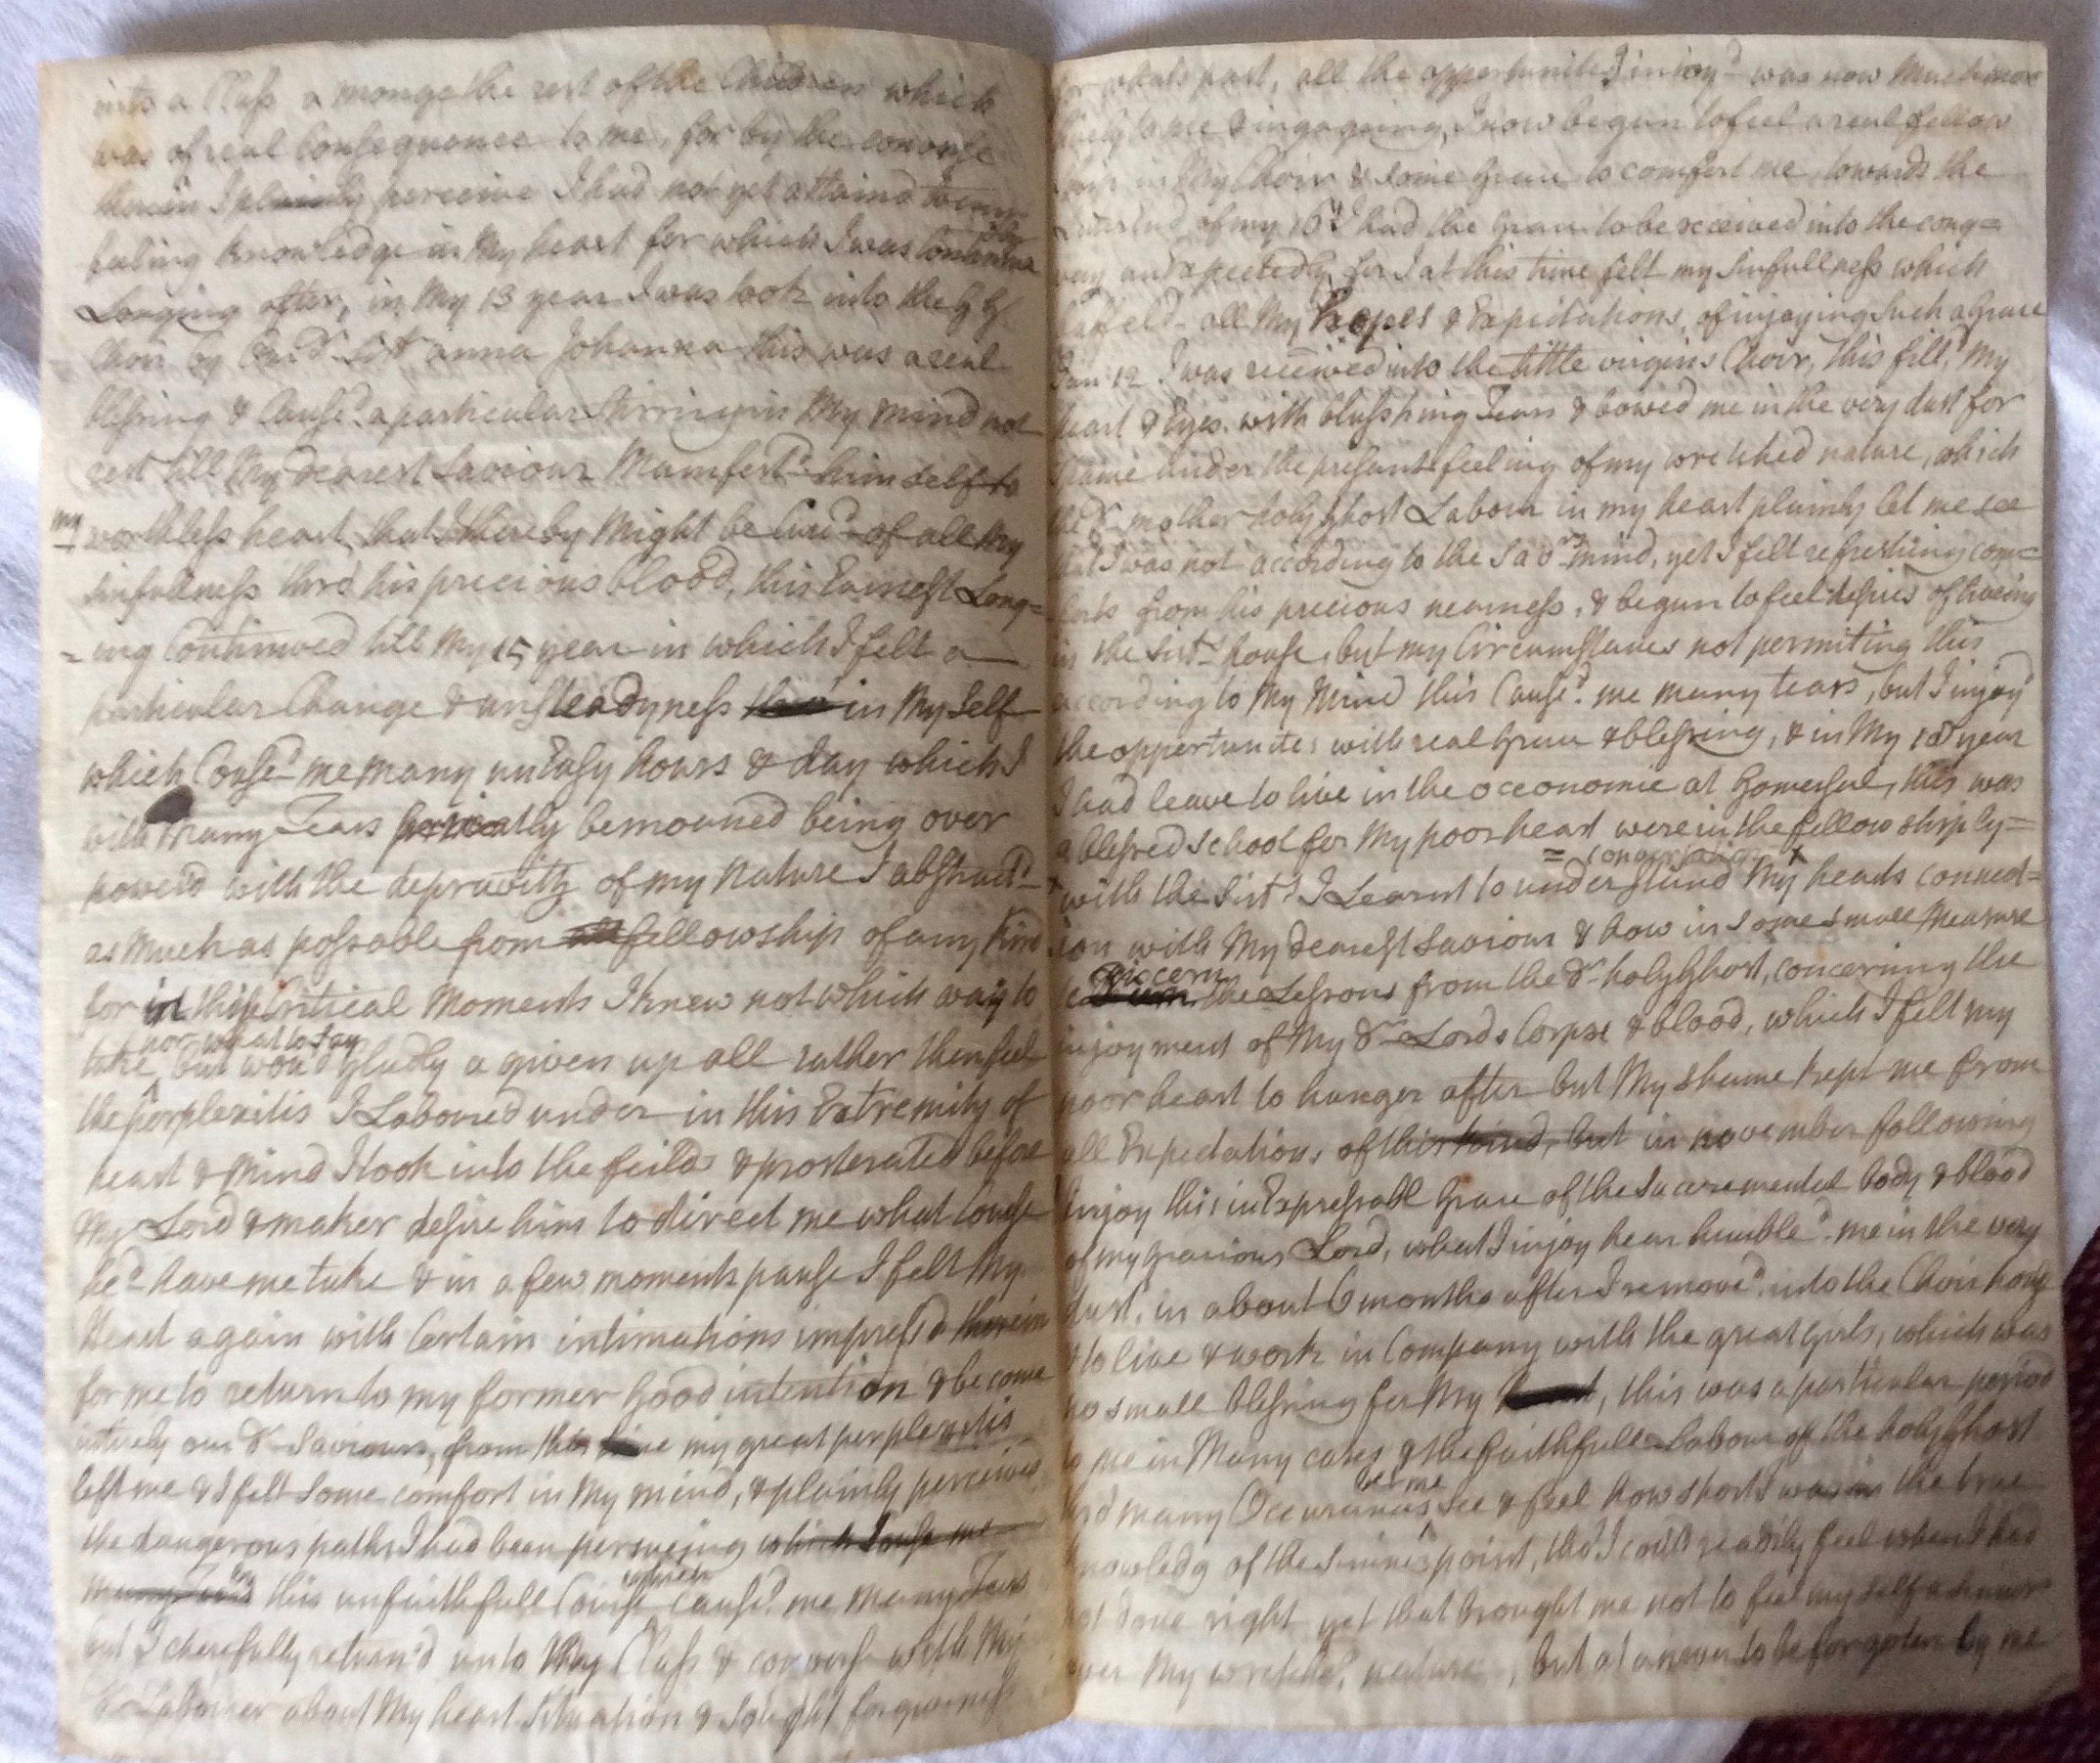 into a Class a monge the rest of the Children which
was of real Consequance to me, for by the converse
therein I plainly perceive I had not yet attaind to any
feeling knowledge in My heart for which I was Continualy
Longing after, in My 13 year I was took into the G G
Choir by Sist anna Johanna this was a real
blessing & Caus'd a particular stirring in My Mind not
rest till My dearest Saviour Mamfest'd himself to
my worthless heart that I thereby Might be Cured of all My
sinfullness thro his precious blood, this Earnest Long=
=ing Continued till My 15 year in which I felt a
particular Change & unsteadyness thro in My Self
which Cause'd me many uneasy hours & day which I
with Many Tears privatly bemoaned being over
powerd with the depravity of my Nature I abstract'd
as Much as possable from all fellowship of any kind
for in this Critical Moments I knew not which way to
take nor what to say but would gladly a given up all rather then feel
the perplexitis I Laboured under in this Extremity of
heart & Mind I took into the feilds & prosterated before
My Lord & maker desire him to direct me what Couse
he'd have me take & in a few moments pause I felt My
Heart again with Certain intimations impress'd therein
for me to return to my former Good intention & become
intirely our dr Saviours, from this time my great perplexitis
left me & I felt some comfort in My mind, & plainly perceived
the dangerous paths I had been persueing which Cause me
many Tears this unfaithfull Course which cause'd me many Tears
but I cherefully return'd unto My Class & converse with My
Labourer about My heart Situation & sought forgiveness
for whats past, all the oppertunites I injoy'd was now Much more
lively to me & ingageing, I now begun to feel a real fellow
ship in My Choir & some Grace to comfort me, towards the
Latter End of my 16th I had the Grace to be received into the cong=
very unexpectedly for I at this time felt my Sinfullness which
all My hopes & Expectations, of injoying Such a Grace
Jan 12 I was received into the little virgins Choir, this fill'd My
heart & Eyes with blushing Tears & bowed me in the very dust for
shame under the presant feeling of my wretched nature, which
the dr mother holy ghost Labour in my heart plainly let me see
that I was not according to the Savrs mind, yet I felt refreshing com=
forts from his precious nearness, & begun to feel desires of liveing
in the Sistrs house, but my Circumstances not permiting this
according to My Mind this Cause'd me many tears, but I injoy'd
the oppertunites with real Grace & blessing, & in My 18 year
I had leave to live in the oeconomie at Gomersal, this was
a blessed school for My poor heart were in the fellowship ly=
= congrigation x
with the Sistrs I Learnt to understand My heads conned=
ion with My dearest Saviour & how in some small Measure
discern the Lessons from the dr holy Ghost, concerning the
injoyment of My dr Lords Corpse & blood, which I felt my
poor heart to hunger after but My shame kept me from
all Expectations of this kind, but in november following
Injoy this inExpressabl Grace of the Sacaremental body & blood
of my Gracious Lord, what I injoy hear humble'd me in the very
dust, in about 6 months after I remove'd into the Choir house
to live & work in Company with the great Girls, which was
no small blessing for My heart, this was a particular period
to me in Many cases & the faithfull Labour of the holy Ghost
and many Occurances let me see & feel how short I was in the true
knowledg of the Sinners point, tho I could readily feel when I had
not done right yet that brought me not to feel my self a Sinner
over My wretched nature, but at a never to be forgoten by me